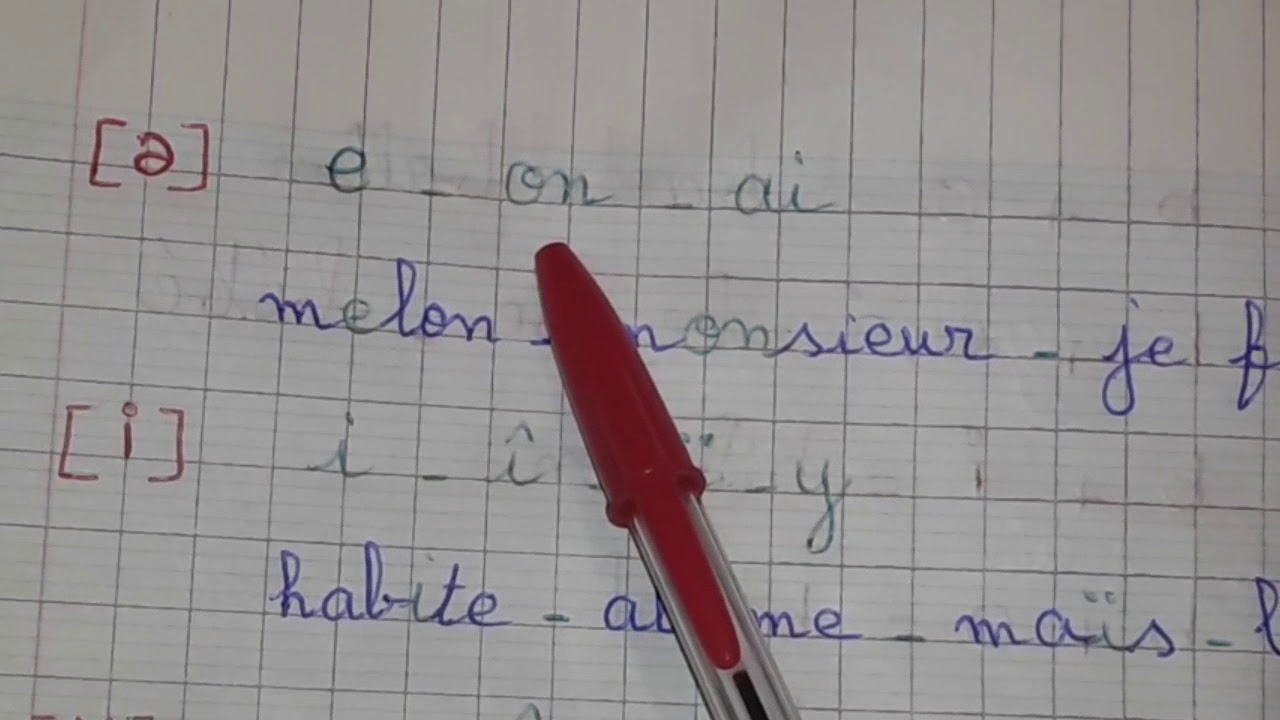 [ə] e - on - ai
melon - monsieur - je
[i] i - î - ï - y
habite - - maïs -